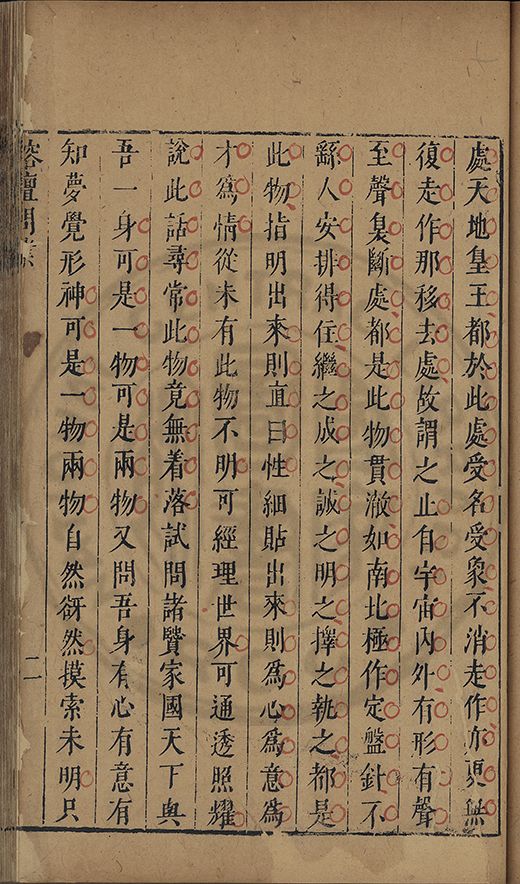 處天地皇王都於此處受名受象不消走作亦更無
復走作那移去處故謂之止自宇宙內外有形有聲
至聲臭斷處都是此物貫澈如南北極作定盤針不
繇人安排得住繼之成之誠之明之擇之執之都是
此物指明出來則直曰性細貼出來則為心為意為
才為情從未有此物不明可經理世界可通透照耀
說此話尋常此物竟無着落試問諸賢家國天下與
吾一身可是一物可是兩物又問吾身有心有意有
知夢覺形神可是一物兩物自然谺然摸索未明只
榕壇問業
二